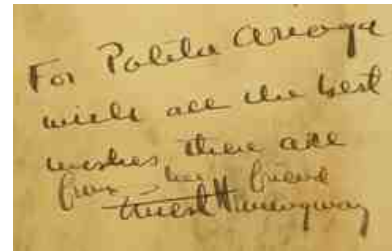 For Polita Arroyo
with all the best
wishes there are
from her friend
Ernest Hemingway